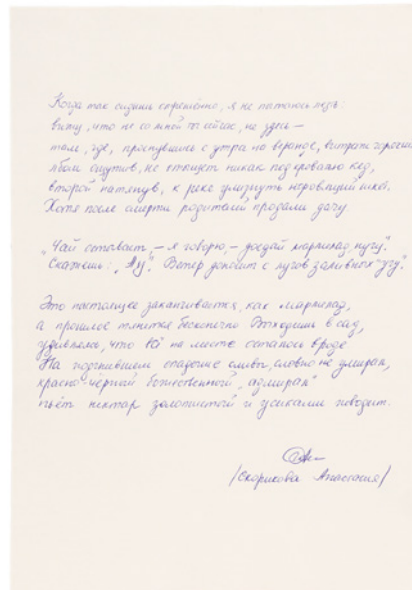 Когда так сидишь отрешённо, я не пытаюсь лезть:
вижу, что не со мной ты сейчас, не здесь —
там, где, проснувшись с утра на веранде, витраж горячий
лбом ощутив, не отыщет никак под кроватью кед,
второй натянув, к реке улизнуть норовящий шкет.
Хотя после смерти родителей продали дачу.
"Чай остывает, — я говорю, — доедай мармелад, нугу".
Скажешь: "Угу". Ветер доносит с лугов заливных "угу".
Это настоящее заканчивается, как мармелад,
а прошлое тянется бесконечно. Выходишь в сад,
удивляясь, что всё на месте осталось вроде.
На подгнившем спадыше сливы, словно не умирал,
красно-чёрный божественный "адмирал"
пьёт нектар золотистый и усиками поводит.
/Скорикова Анастасия/